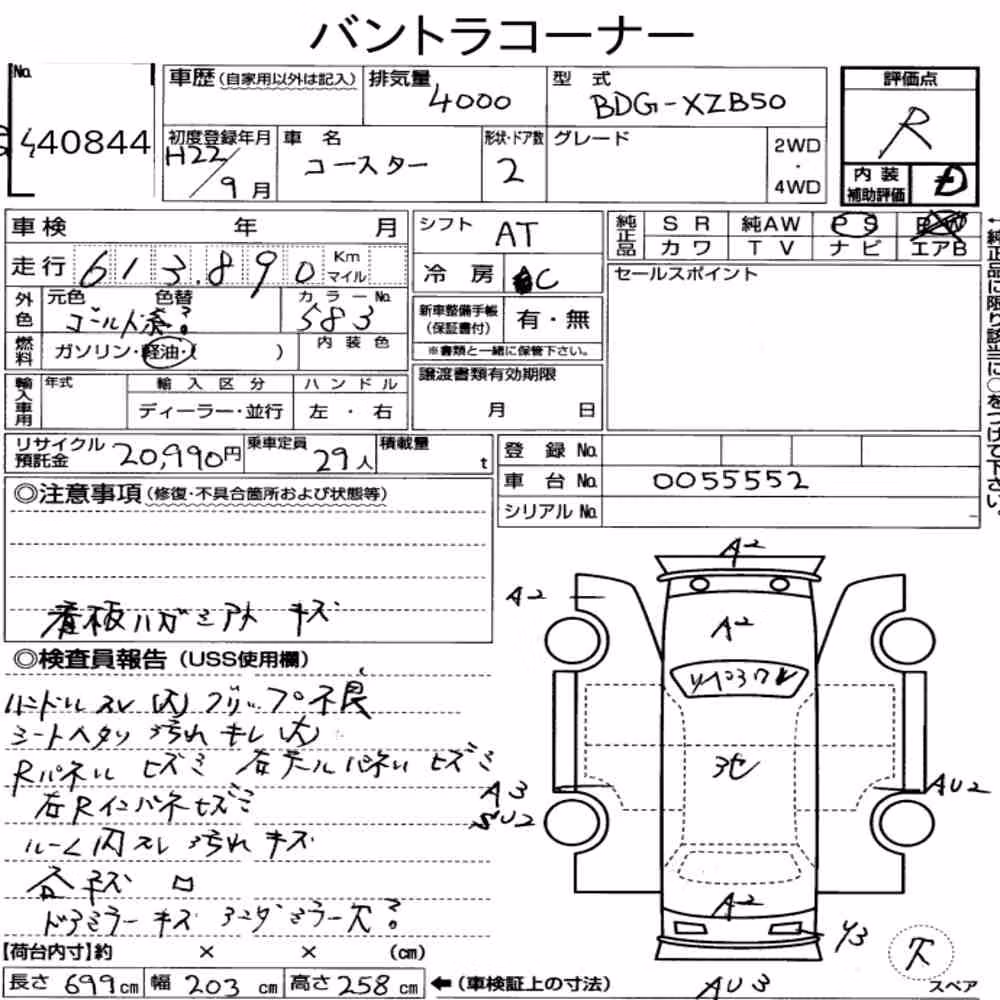 バントラコーナー
No. 440844
車歴 (自家用以外は記入) 排気量 4000 型式 BDG-XZB50
評価点 R
初度登録年月 H22/9月 車名 コースター 形状・ドア数 2 グレード 2WD・4WD
内装補助評価 D
車検 年 月
シフト AT
純正品 SR 純AW PS PW
カワ TV ナビ エアB
走行 613.890 Km マイル
冷房 AC
セールスポイント
←純正品に限り該当に○をつけて下さい。
外色 元色 ゴールド 色替 カラーNo. 583
新車整備手帳(保証書付) 有・無
※書類と一緒に保管下さい。
燃料 ガソリン・軽油・( ) 内装色
輸入車用 年式 輸入区分 ハンドル
ディーラー・並行 左・右
譲渡書類有効期限
月 日
リサイクル預託金 20,990円 乗車定員 29人 積載量 t
登録No.
車台No. 0055552
シリアルNo.
◎注意事項 (修復・不具合箇所および状態等)
看板ハガシアト キズ
◎検査員報告 (USS使用欄)
ハンドルスレ(大) グリップ不良
シートヘタリ 汚れ キレ(大)
Rパネル ヒズミ 右テールパネル ヒズミ
右Rインパネヒズミ
ルーム内スレ 汚れ キズ
ドアミラーキズ アンダミラー欠
A2
A2
A2
ワイパ3
A3
SU2
AU2
A2
Y3
欠
AU3
スペア
【荷台内寸】約 × × (cm)
長さ 699cm 幅 203cm 高さ 258cm ←(車検証上の寸法)